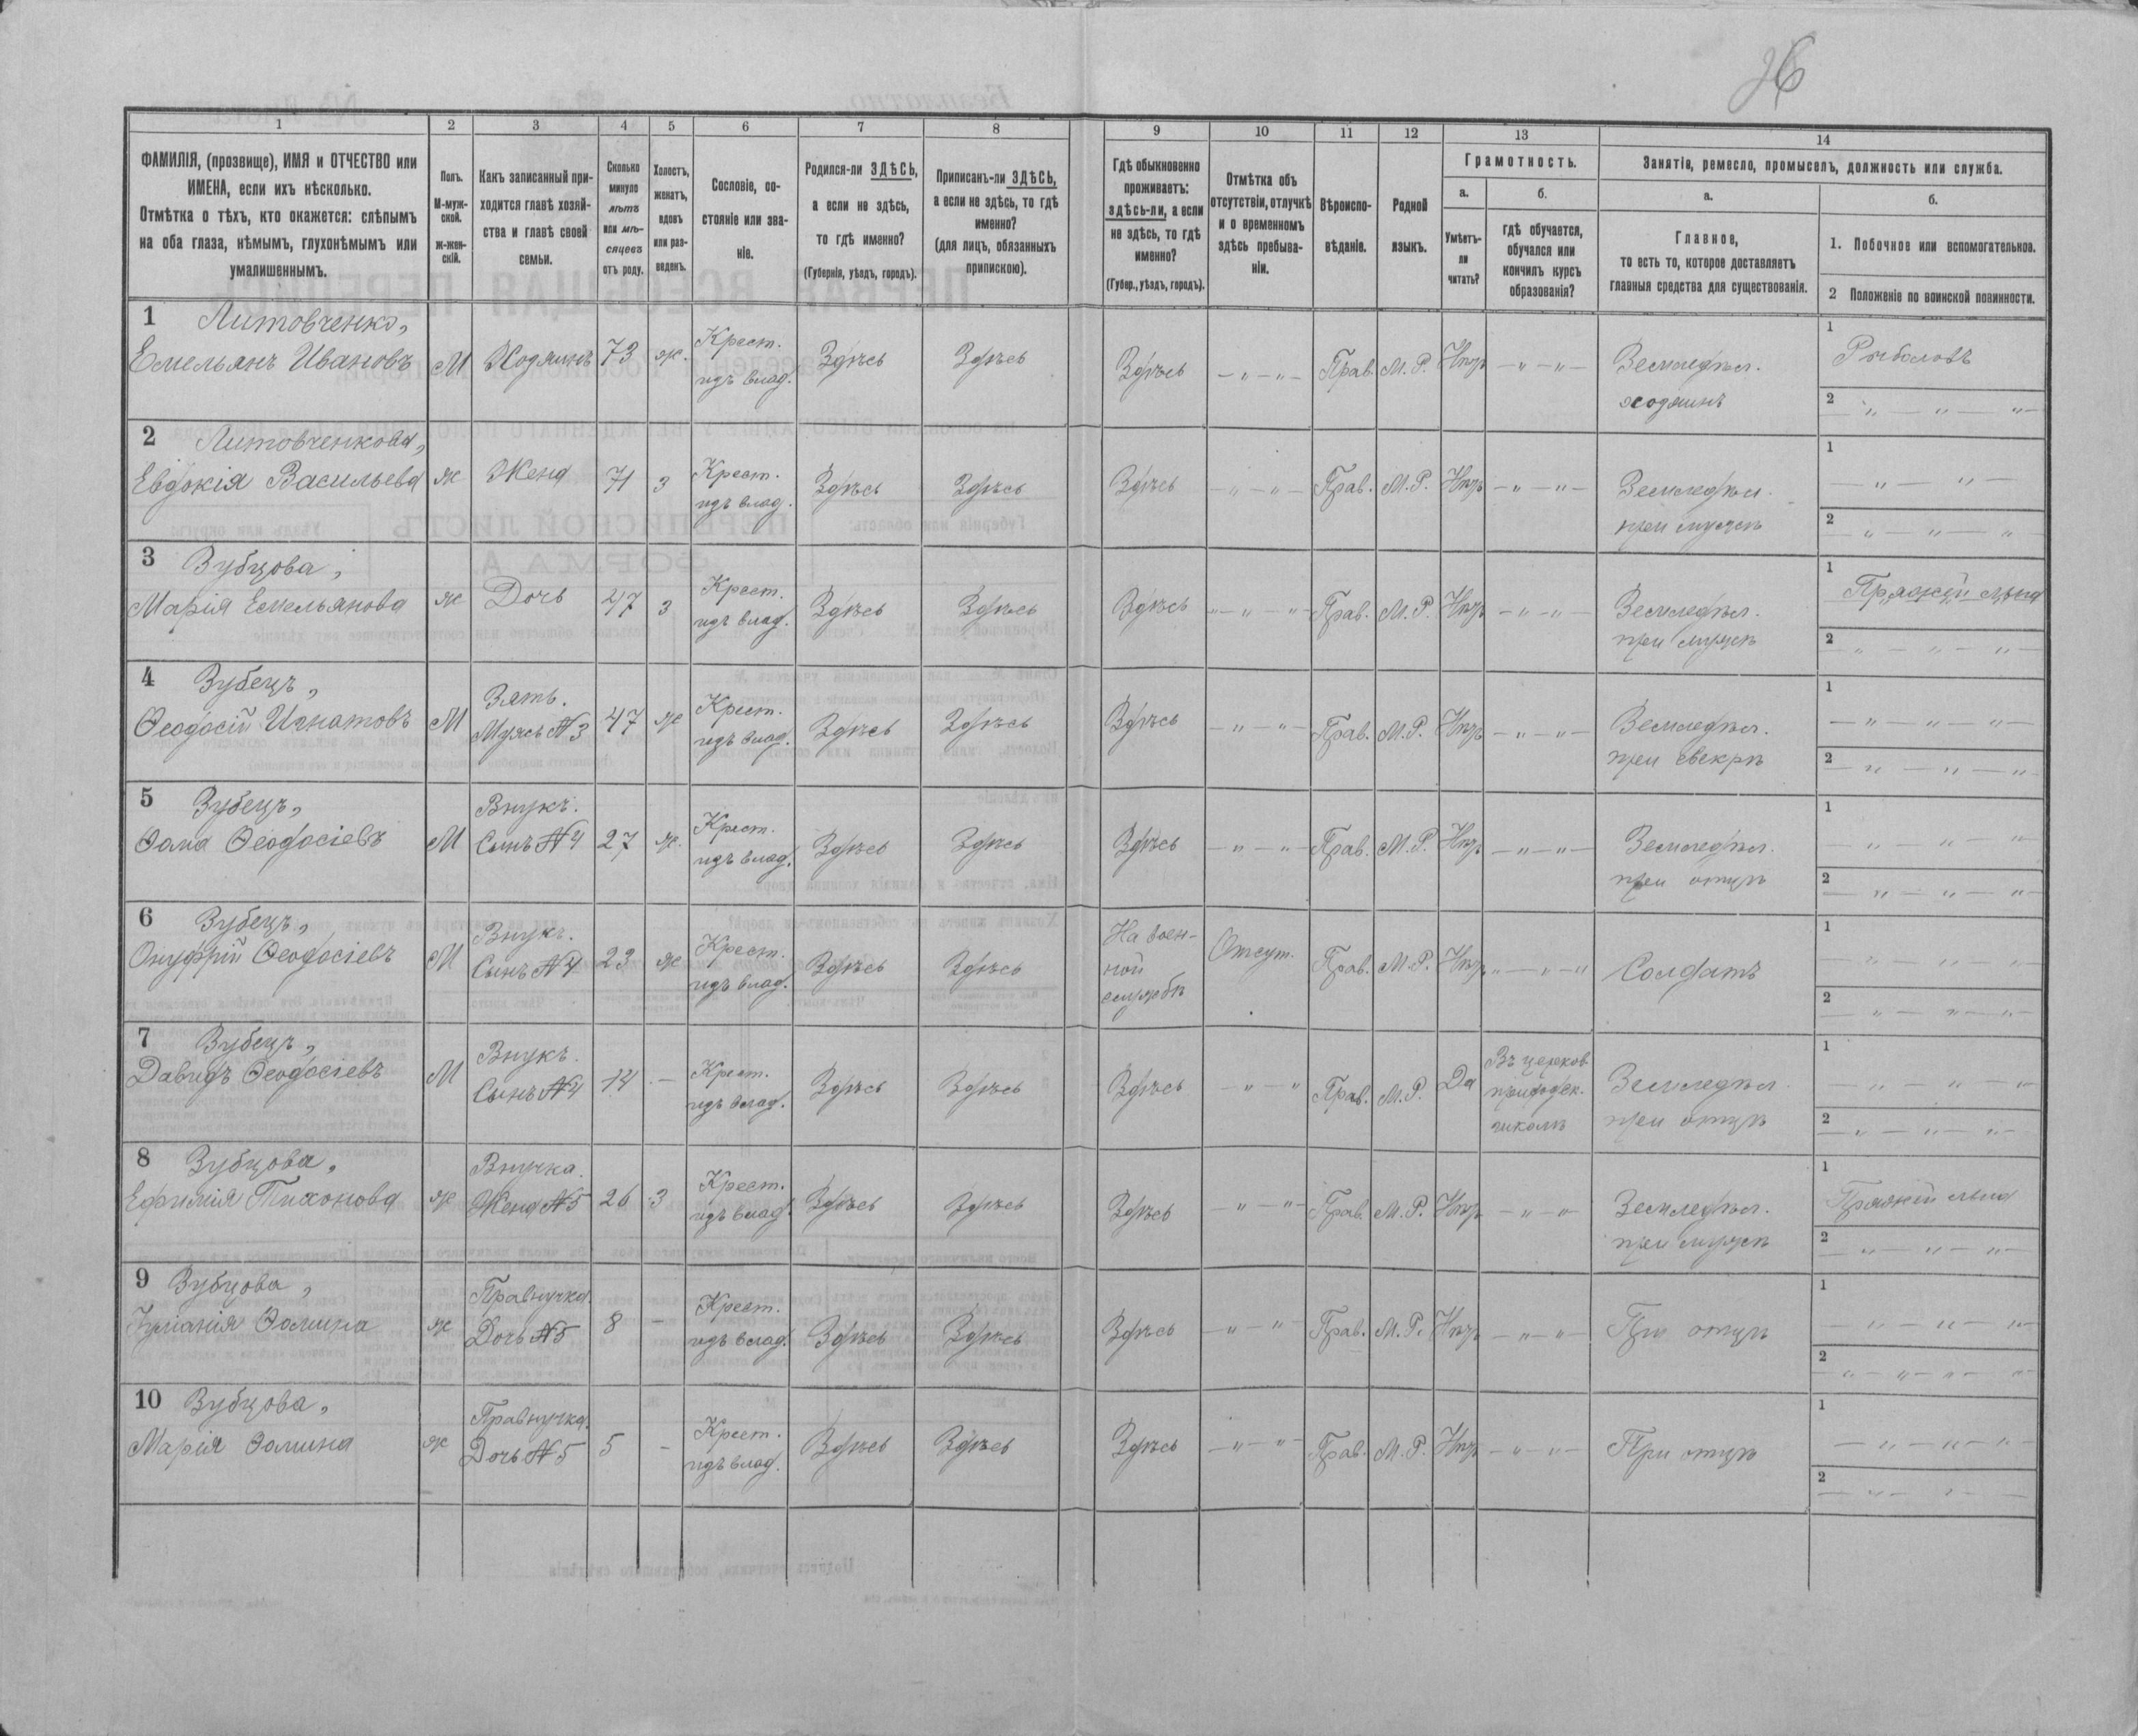 26
1
2
3
4
5
6
7
8
9
10
11
12
13
14
ФАМИЛІЯ, (прозвище), ИМЯ и ОТЧЕСТВО или
ИМЕНА, если ихъ нѣсколько.
Отмѣтка о тѣхъ, кто окажется: слѣпымъ
на оба глаза, нѣмымъ, глухонѣмымъ или
умалишеннымъ.
Полъ.
М-муж-
ской.
ж-жен-
скій.
Какъ записанный при-
ходится главѣ хозяй-
ства и главѣ своей
семьи.
Сколько
минуло
лѣтъ
или мѣ-
сяцевъ
отъ роду.
Холостъ,
женатъ,
вдовъ
или раз-
веденъ.
Сословіе, со-
стояніе или зва-
ніе.
Родился-ли ЗДѢСЬ,
а если не здѣсь,
то гдѣ именно?
(Губернія, уѣздъ, городъ).
Приписанъ-ли ЗДѢСЬ,
а если не здѣсь, то гдѣ
именно?
(для лицъ, обязанныхъ
припискою).
Гдѣ обыкновенно
проживаетъ:
здѣсь-ли, а если
не здѣсь, то гдѣ
именно?
(Губер., уѣздъ, городъ).
Отмѣтка объ
отсутствіи, отлучкѣ
и о временномъ
здѣсь пребыва-
ніи.
Вѣроиспо-
вѣданіе.
Родной
языкъ.
Грамотность.
а.
Умѣетъ-
ли
читать?
б.
гдѣ обучается,
обучался или
кончилъ курсъ
образованія?
Занятіе, ремесло, промыселъ, должность или служба.
а.
Главное,
то есть то, которое доставляетъ
главныя средства для существованія.
б.
1. Побочное или вспомогательное.
2 Положеніе по воинской повинности.
1 Литовченко,
Емельянъ Ивановъ М Хозяинъ 73 ж. Крест. изъ влад. Здѣсь Здѣсь Здѣсь — " — " — Прав. М.Р. Нѣтъ — " — " — Земледѣл. хозяинъ 1 Рыболовъ
2 — " — " — "
2 Литовченкова,
Евдокія Васильева ж Жена 71 з Крест. изъ влад. Здѣсь Здѣсь Здѣсь — " — " — Прав. М.Р. Нѣтъ — " — " — Земледѣл. при мужѣ 1 — " — " —
2 — " — " — "
3 Зубцова,
Марія Емельянова ж Дочь 47 з Крест. изъ влад. Здѣсь Здѣсь Здѣсь " — " — " Прав. М.Р. Нѣтъ — " — " — Земледѣл. при мужѣ 1 Пряжей льна
2 — " — " — " —
4 Зубецъ,
Ѳеодосій Игнатовъ М Зять. Мужъ №3 47 ж Крест. изъ влад. Здѣсь Здѣсь Здѣсь — " — " — Прав. М.Р. Нѣтъ — " — " — Земледѣл. при свекрѣ 1 — " — " — " —
2 — " — " — "
5 Зубецъ,
Ѳома Ѳеодосіевъ М Внукъ. Сынъ №4 27 ж. Крест. изъ влад. Здѣсь Здѣсь Здѣсь — " — " — Прав. М.Р. Нѣтъ — " — " — Земледѣл. при отцѣ 1 — " — " — "
2 — " — " — "
6 Зубецъ,
Онуфрій Ѳеодосіевъ М Внукъ. Сынъ №4 23 ж Крест. изъ влад. Здѣсь Здѣсь На воен- ной службѣ Отсут. Прав. М.Р. Нѣтъ " — " — " Солдатъ 1 — " — " — "
2 — " — " — "
7 Зубецъ,
Давидъ Ѳеодосіевъ М Внукъ. Сынъ №4 14 — Крест. изъ влад. Здѣсь Здѣсь Здѣсь — " — " Прав. М.Р. Да Въ церков. приходск. школѣ Земледѣл. при отцѣ 1 " — " — "
2 — " — " — "
8 Зубцова,
Ефимія Тихонова ж Внучка. Жена №5 26 з Крест. изъ влад. Здѣсь Здѣсь Здѣсь — " — " — Прав. М.Р. Нѣтъ — " — " Земледѣл. при мужѣ 1 Пряжей льна
2 — " — " — "
9 Зубцова,
Ѳомина ж Правнучка. Дочь №5 8 — Крест. изъ влад. Здѣсь Здѣсь Здѣсь — " — " Прав. М.Р. Нѣтъ — " — " — При отцѣ 1 — " — " — "
2 — " — " — "
10 Зубцова,
Марія Ѳомина ж Правнучка. Дочь №5 5 — Крест. изъ влад. Здѣсь Здѣсь Здѣсь — " — " Прав. М.Р. Нѣтъ — " — " — При отцѣ 1 — " — " — "
2 — " — " —